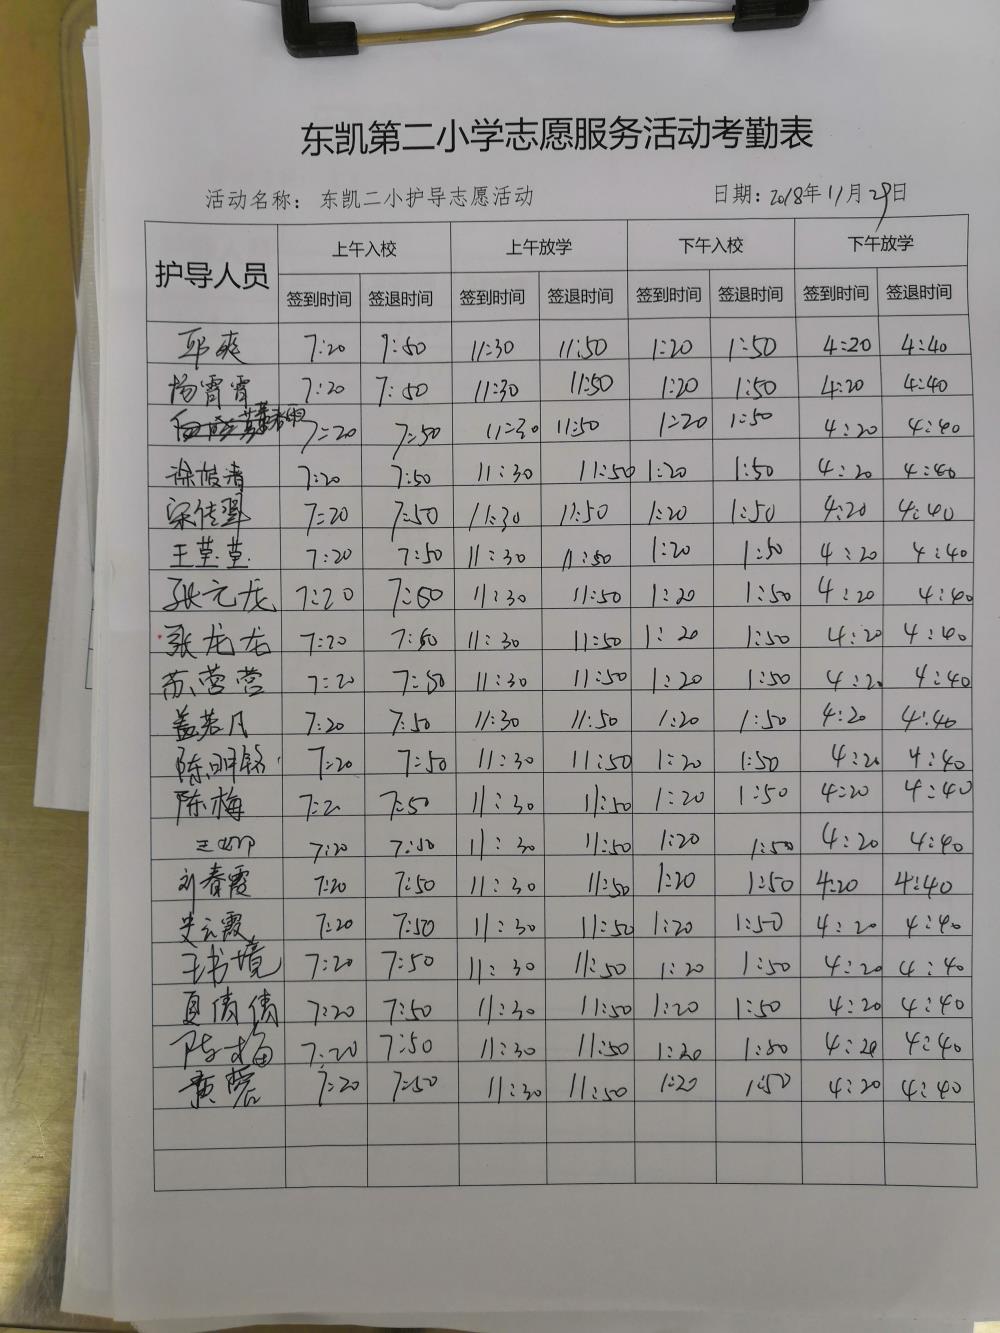 东凯第二小学志愿服务活动考勤表
活动名称： 东凯二小护导志愿活动 日期：2018年11月29日
护导人员 上午入校 上午放学 下午入校 下午放学
签到时间 签退时间 签到时间 签退时间 签到时间 签退时间 签到时间 签退时间
邱爽 7:20 7:50 11:30 11:50 1:20 1:50 4:20 4:40
杨霄霄 7:20 7:50 11:30 11:50 1:20 1:50 4:20 4:40
7:20 7:50 11:30 11:50 1:20 1:50 4:20 4:40
7:20 7:50 11:30 11:50 1:20 1:50 4:20 4:40
宋佳翌 7:20 7:50 11:30 11:50 1:20 1:50 4:20 4:40
王堇堇 7:20 7:50 11:30 11:50 1:20 1:50 4:20 4:40
张元龙 7:20 7:50 11:30 11:50 1:20 1:50 4:20 4:40
张龙龙 7:20 7:50 11:30 11:50 1:20 1:50 4:20 4:40
苏营营 7:20 7:50 11:30 11:50 1:20 1:50 4:20 4:40
盖若月 7:20 7:50 11:30 11:50 1:20 1:50 4:20 4:40
陈明铭 7:20 7:50 11:30 11:50 1:20 1:50 4:20 4:40
陈梅 7:20 7:50 11:30 11:50 1:20 1:50 4:20 4:40
7:20 7:50 11:30 11:50 1:20 1:50 4:20 4:40
刘春霞 7:20 7:50 11:30 11:50 1:20 1:50 4:20 4:40
史云霞 7:20 7:50 11:30 11:50 1:20 1:50 4:20 4:40
王书境 7:20 7:50 11:30 11:50 1:20 1:50 4:20 4:40
夏倩倩 7:20 7:50 11:30 11:50 1:20 1:50 4:20 4:40
陈梅 7:20 7:50 11:30 11:50 1:20 1:50 4:20 4:40
7:20 7:50 11:30 11:50 1:20 1:50 4:20 4:40